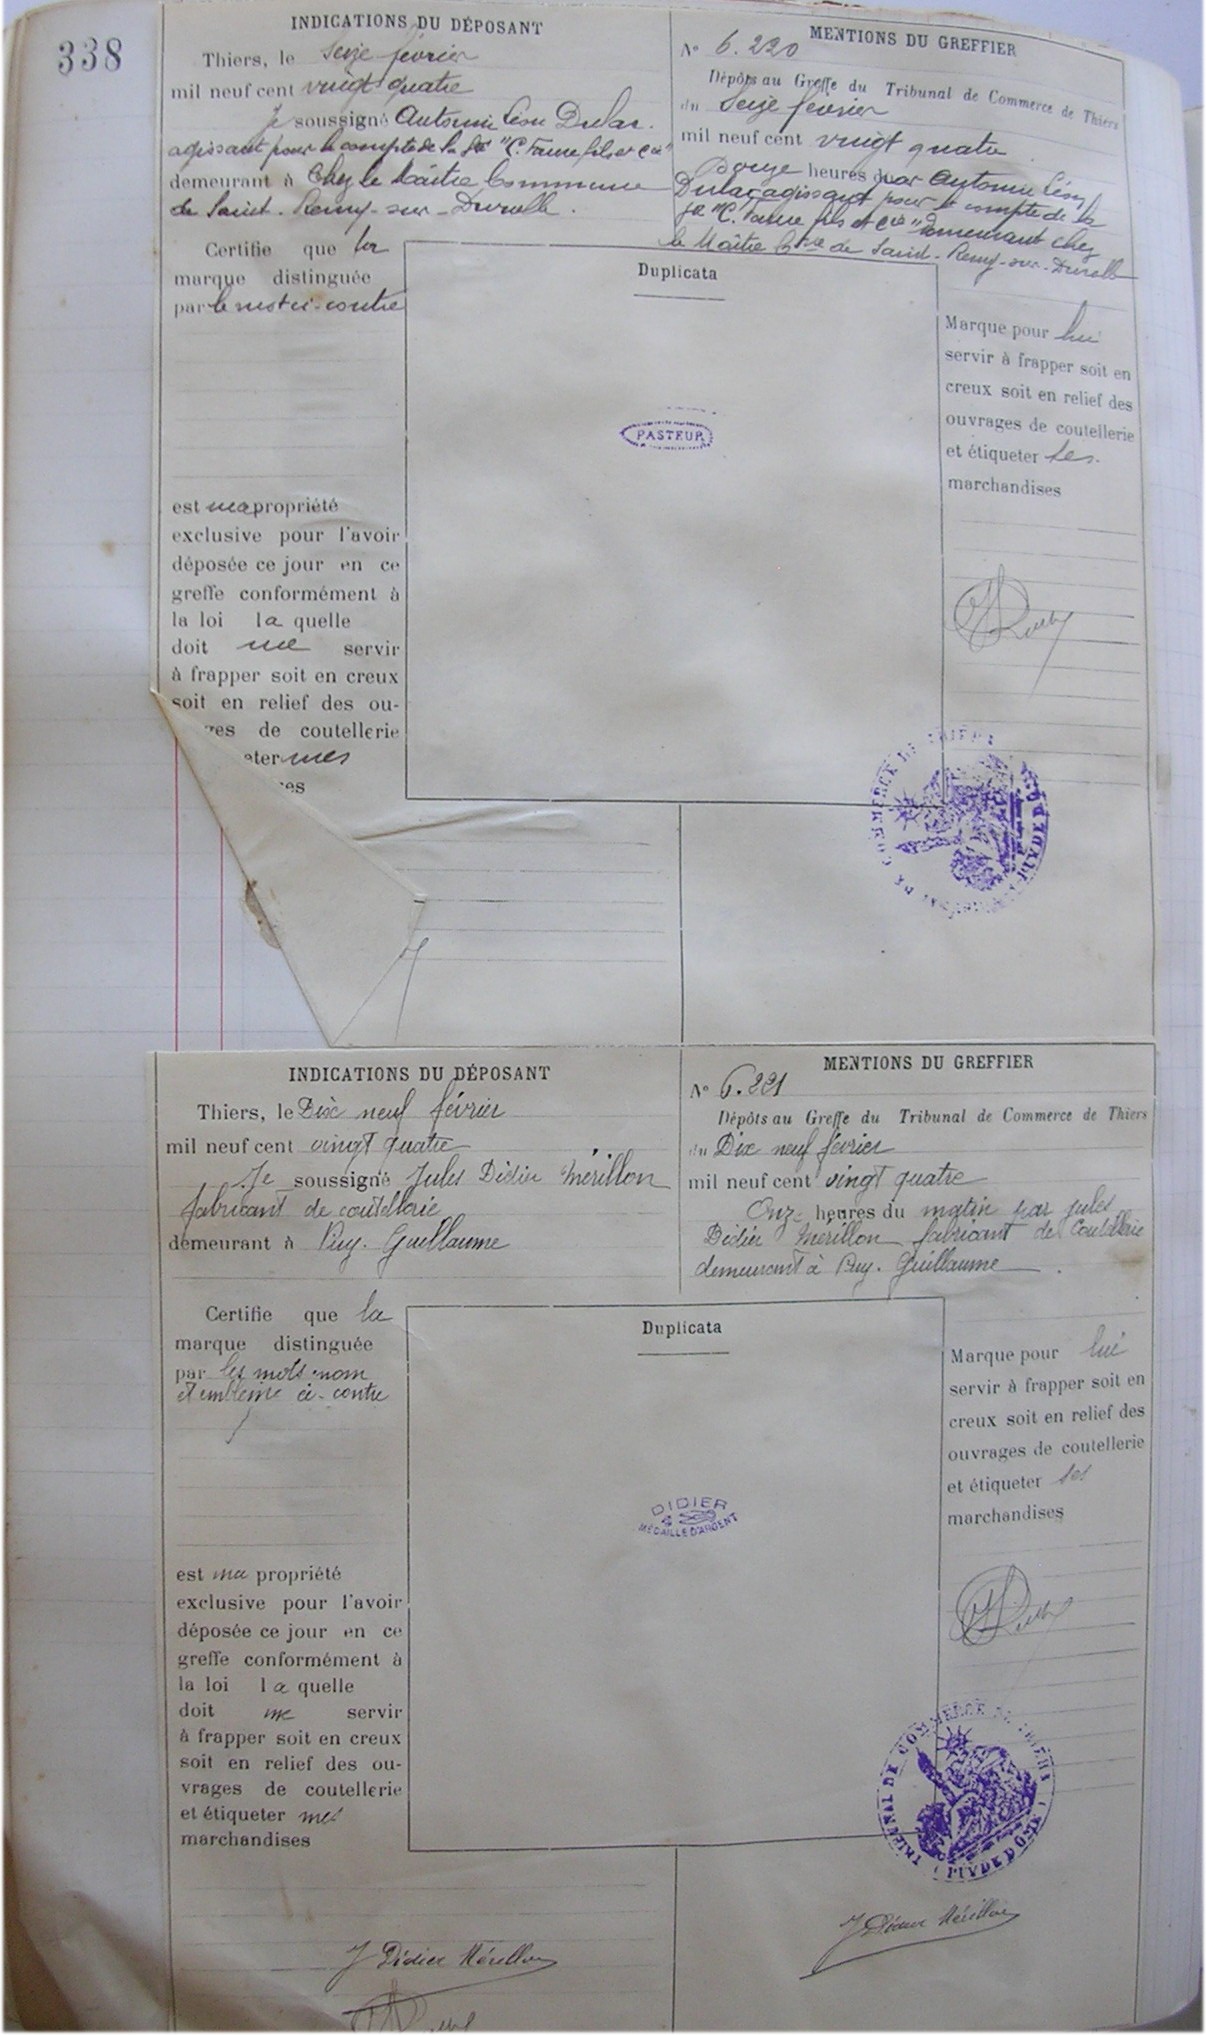 338
INDICATIONS DU DÉPOSANT
Thiers, le Seize février
mil neuf cent vingt quatre
Je soussigné Antonin Léon Dulac
agissant pour le compte de la Sté "C. Favre fils et Cie"
demeurant à Chez le Maître Commune
de Saint-Remy-sur-Durolle.
Certifie que la
marque distinguée
par le mot ci-contre
est ma propriété
exclusive pour l'avoir
déposée ce jour en ce
greffe conformément à
la loi la quelle
doit me servir
à frapper soit en creux
soit en relief des ou-
ges de coutellerie
eter mes
es
MENTIONS DU GREFFIER
N° 6.220
Dépôts au Greffe du Tribunal de Commerce de Thiers
du Seize février
mil neuf cent vingt quatre
heures par Antonin Léon
Dulac agissant pour le compte de la
Sté "C. Favre fils et Cie" demeurant chez
le Maître Cne de Saint-Remy-sur-Durolle
Duplicata
PASTEUR
Marque pour lui
servir à frapper soit en
creux soit en relief des
ouvrages de coutellerie
et étiqueter ses
marchandises
DE COMMERCE DE THIERS
PUY DE DÔME
INDICATIONS DU DÉPOSANT
Thiers, le Dix neuf février
mil neuf cent vingt quatre
Je soussigné Jules Didier Mérillon
fabricant de coutellerie
demeurant à Puy-Guillaume
Certifie que la
marque distinguée
par les mots nom
et emblème ci-contre
est ma propriété
exclusive pour l'avoir
déposée ce jour en ce
greffe conformément à
la loi la quelle
doit me servir
à frapper soit en creux
soit en relief des ou-
vrages de coutellerie
et étiqueter mes
marchandises
J Didier Mérillon
MENTIONS DU GREFFIER
N° 6.221
Dépôts au Greffe du Tribunal de Commerce de Thiers
du Dix neuf février
mil neuf cent vingt quatre
Onze heures du matin par Jules
Didier Mérillon fabricant de Coutellerie
demeurant à Puy-Guillaume
Duplicata
DIDIER
MÉDAILLE D'ARGENT
Marque pour lui
servir à frapper soit en
creux soit en relief des
ouvrages de coutellerie
et étiqueter ses
marchandises
TRIBUNAL DE COMMERCE DE THIERS
(PUY DE DÔME)
J Didier Mérillon